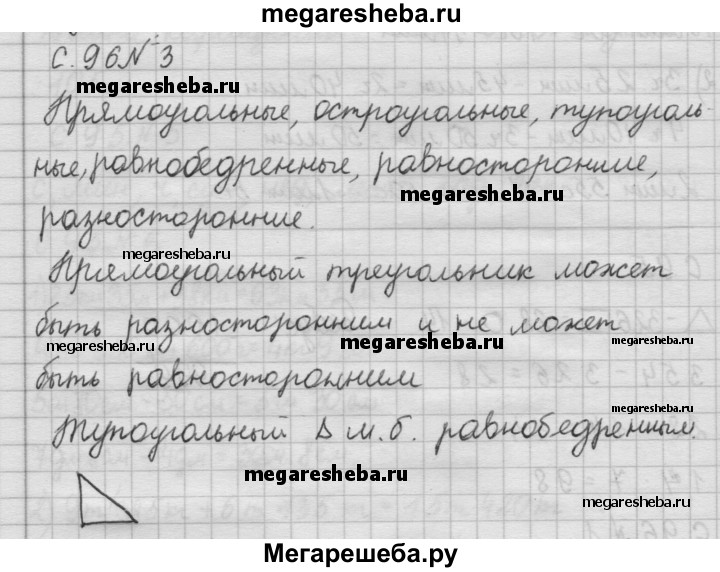 megaresheba.ru
с. 96 № 3
megaresheba.ru
Прямоугольные, остроугольные, тупоуголь-
ные, равнобедренные, равносторонние,
megaresheba.ru
разносторонние.
megaresheba.ru
Прямоугольный треугольник может
быть разносторонним и не может
megaresheba.ru megaresheba.ru megaresheba.ru
быть равносторонним
megaresheba.ru
Тупоугольный Δ м.б. равнобедренным.
megaresheba.ru
megaresheba.ru
Мегарешеба.ру